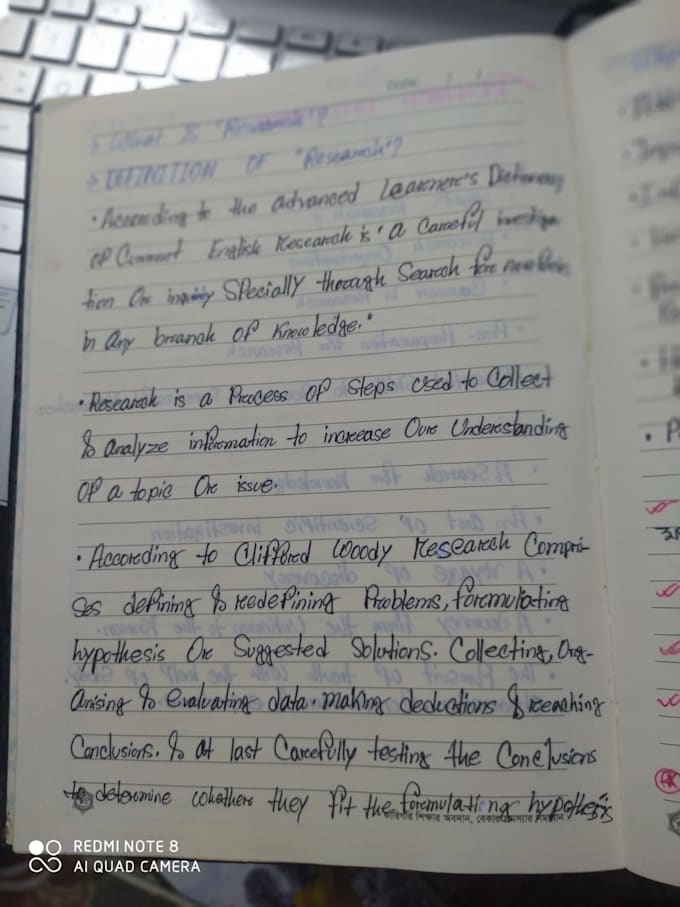 Date / /
→ What Is "Research"?
→ DEFINITION OF "Research"?
• According to the advanced Learner's Dictionary
of Current English Research is 'a Careful investiga-
tion or inquiry Specially through Search for new
in any branch of Knowledge."
• Research is a Process of Steps used to Collect
& analyze information to increase Our Understanding
of a topic Or issue.
• According to Clifford Woody Research Compri-
ses defining & redefining Problems, formulating
hypothesis Or Suggested Solutions. Collecting, Org-
anising & evaluating data. making deductions & reaching
Conclusions. & at last Carefully testing the Conclusions
to determine whether they fit the formulating hypothesis
কারিগরি শিক্ষার অবদান, বেকার সমস্যার সমাধান
REDMI NOTE 8
AI QUAD CAMERA